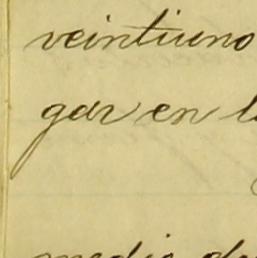 veintiuno
gar en l
medio de